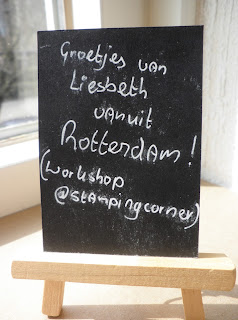 Groetjes van
Liesbeth
vanuit
Rotterdam!
(workshop
@stampingcorner)